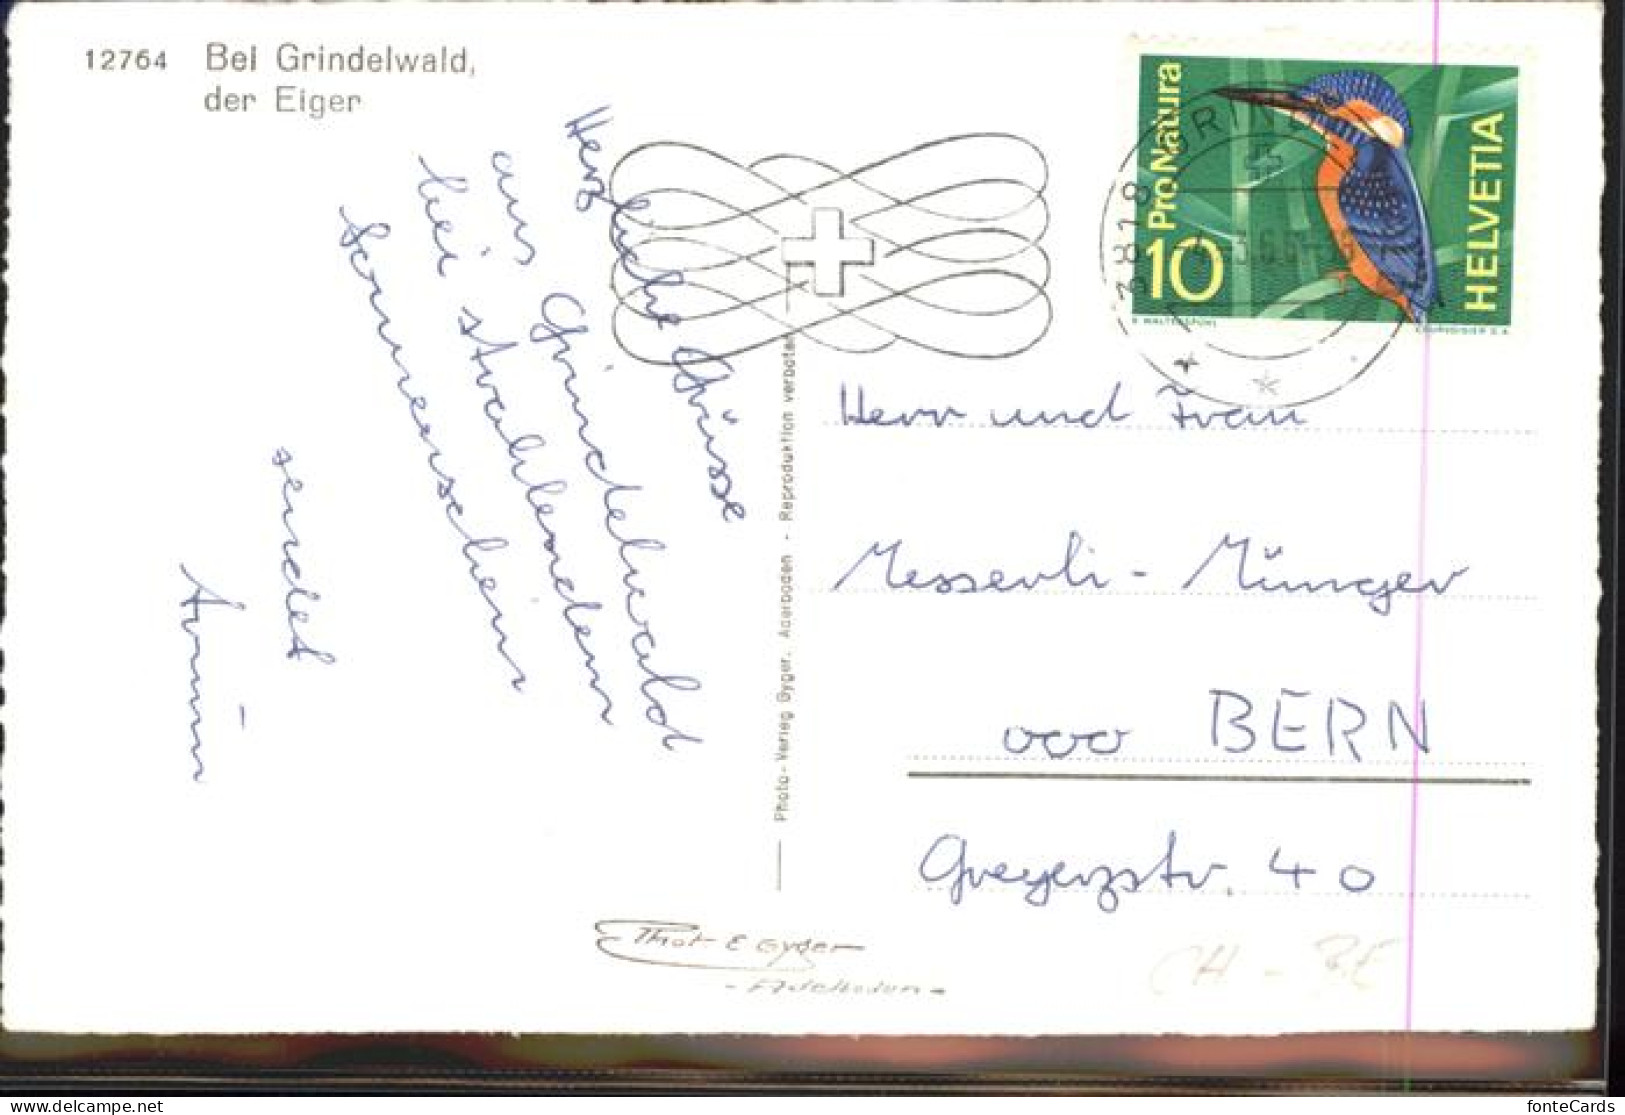 12764 Bei Grindelwald,
der Eiger
Herzliche Grüsse
aus Grindelwald
bei strahlendem
Sonnenschein
sendet
Pro Natura
10
HELVETIA
3818 GRIND
Herr und Frau
Messerli - Münger
BERN
Greyerzstr. 40
Photo-Verlag Gyger, Adelboden - Reproduktion verboten
Phot E Gyger
- Adelboden -
CH - BE
fonteCards